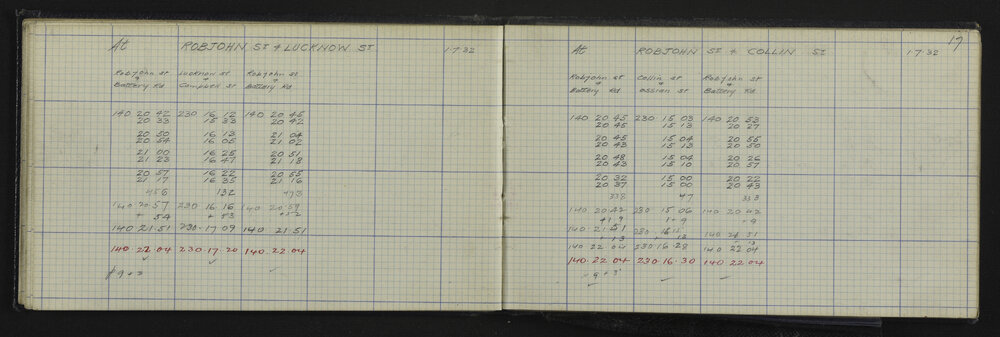 At ROBJOHN ST & LUCKNOW ST 1.7.32
Robjohn st Lucknow st Robjohn st
+ + +
Battery Rd Campbell st Battery Rd
140 20 42 230 16 12 140 20 45
20 33 15 33 20 42
20 50 16 13 21 04
20 54 16 05 21 02
21 00 16 25 20 51
21 23 16 47 21 18
20 57 16 22 20 55
21 17 16 35 21 16
456 132 473
140 20.57 230 16 16 140 20.59
+ 54 + 53 + 52
140 21.51 230.17 09 140 21.51
140.22 04 230.17.20 140.22.04
9 + 3
17
At ROBJOHN ST & COLLIN ST 1.7.32
Robjohn st Collin st Robjohn st
+ + +
Battery Rd Ossian st Battery Rd
140 20 45 230 15 03 140 20 53
20 45 15 13 20 27
20 45 15 04 20 55
20 43 15 13 20 50
20 48 15 04 20 26
20 43 15 10 20 57
20 32 15 00 20 22
20 37 15 00 20 43
338 47 333
140 20 42 230 15 06 140 20 42
+1 9 1+ 9 + 9
140 21 51 230 16 15 140 21 51
+ 13 + 13 13
140 22 04 230 16 28 140 22 04
140.22 04 230.16.30 140 22.04
9 + 3